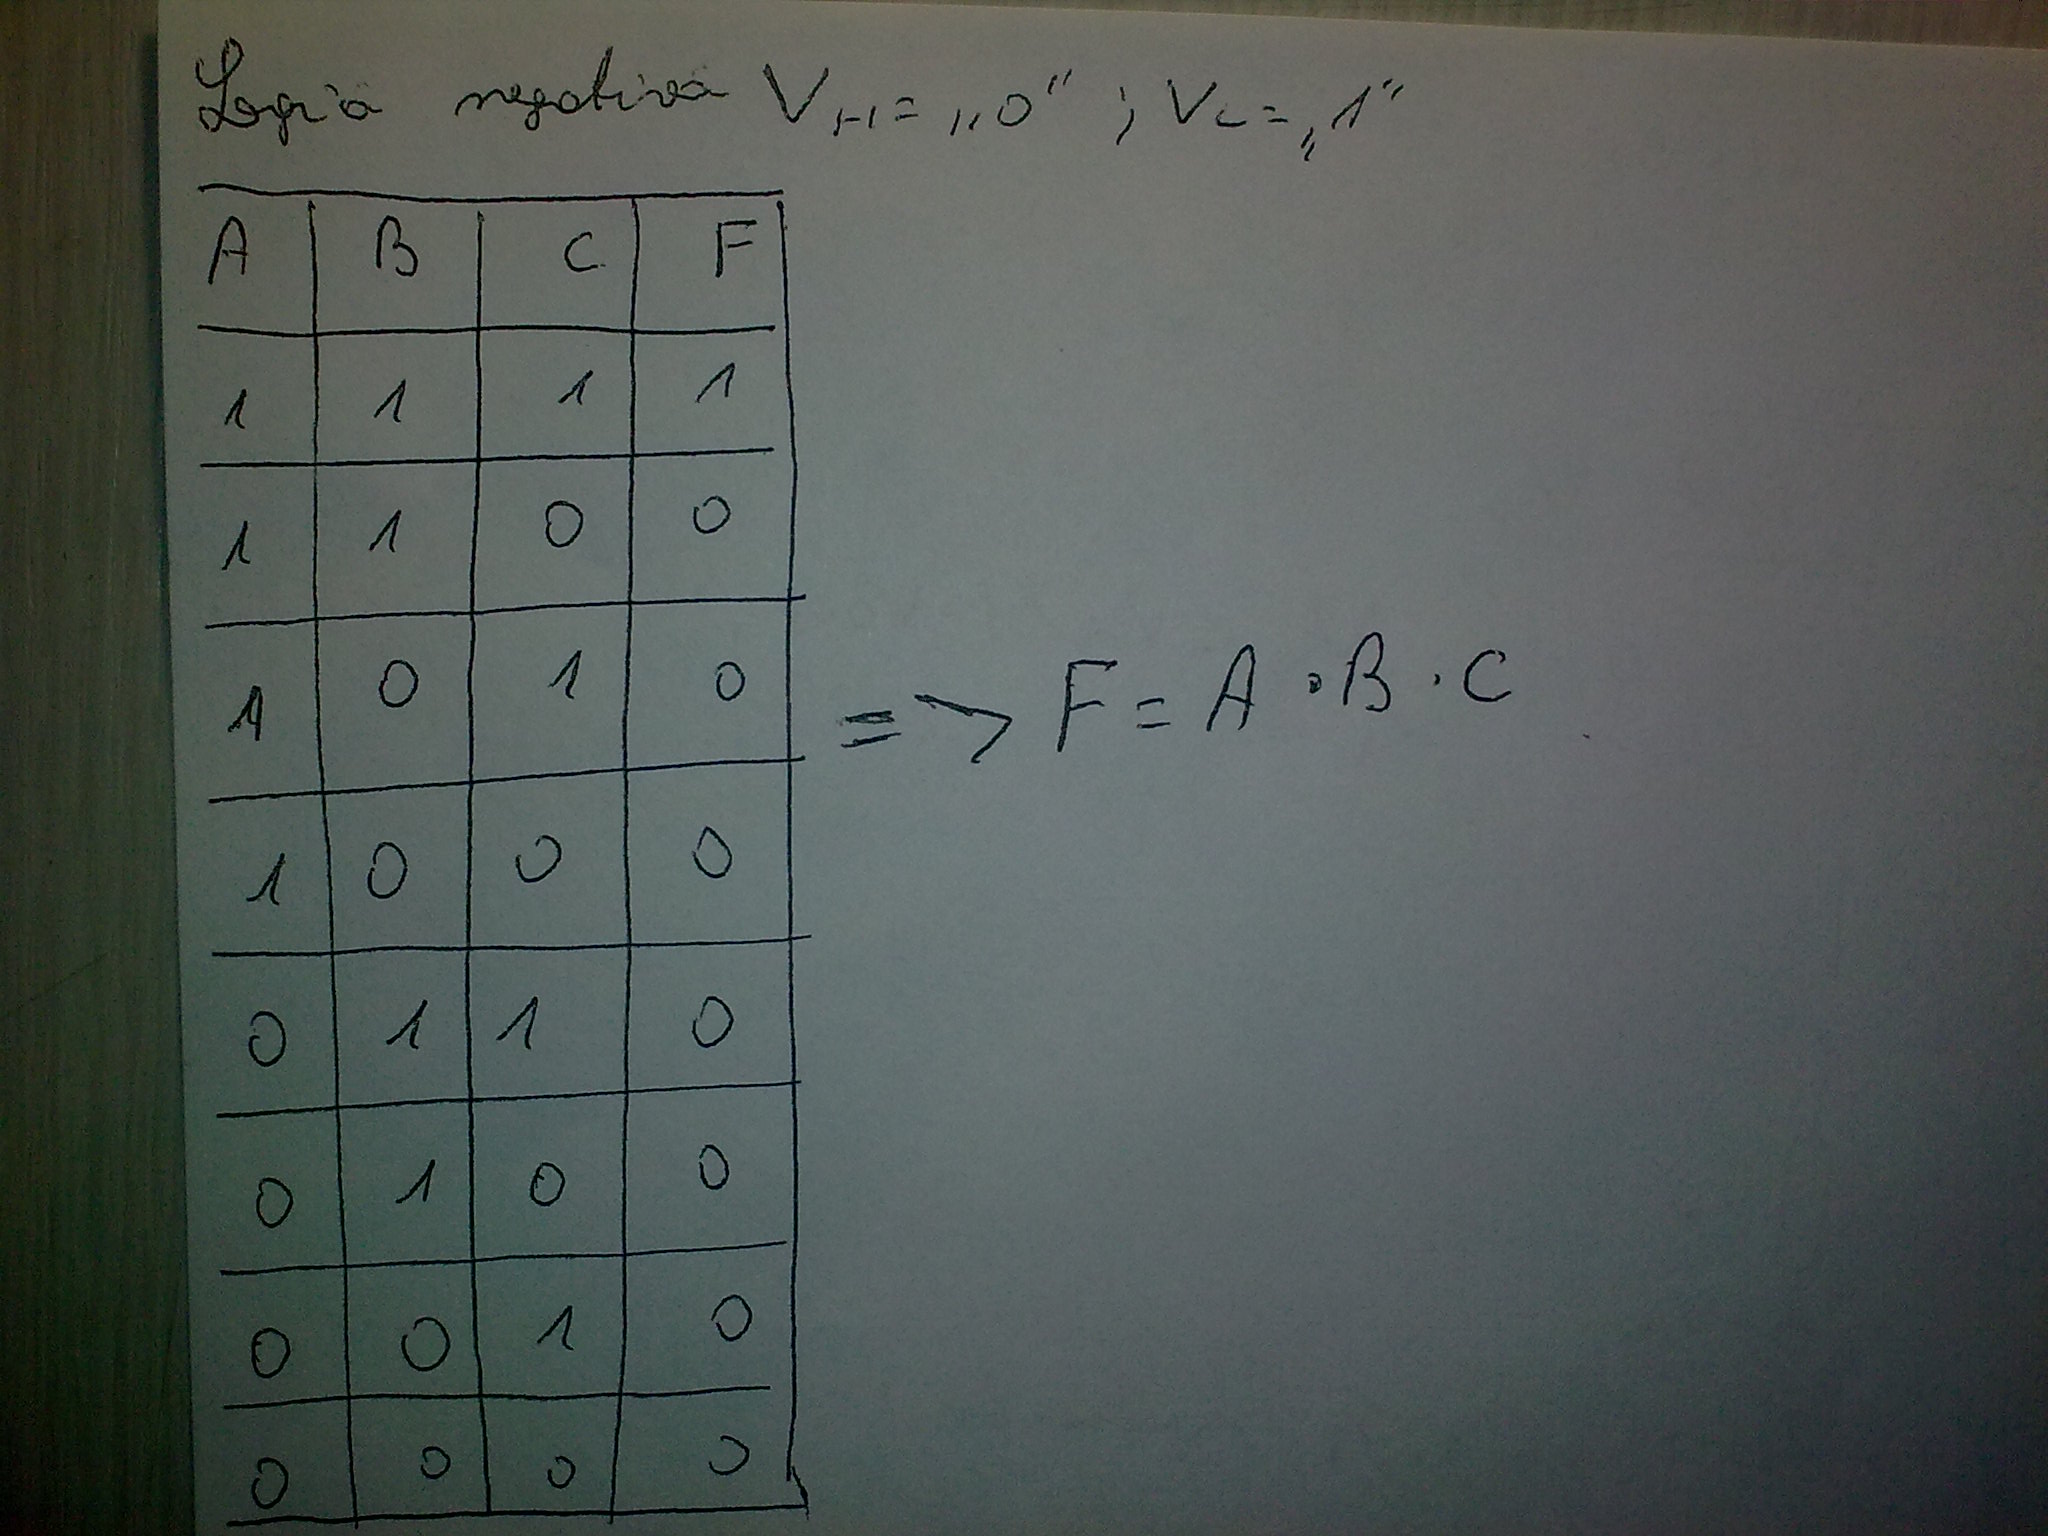 Logica negativa VH = „0” ; VL = „1”
A B C F
1 1 1 1
1 1 0 0
1 0 1 0
1 0 0 0
0 1 1 0
0 1 0 0
0 0 1 0
0 0 0 0
=> F = A · B · C